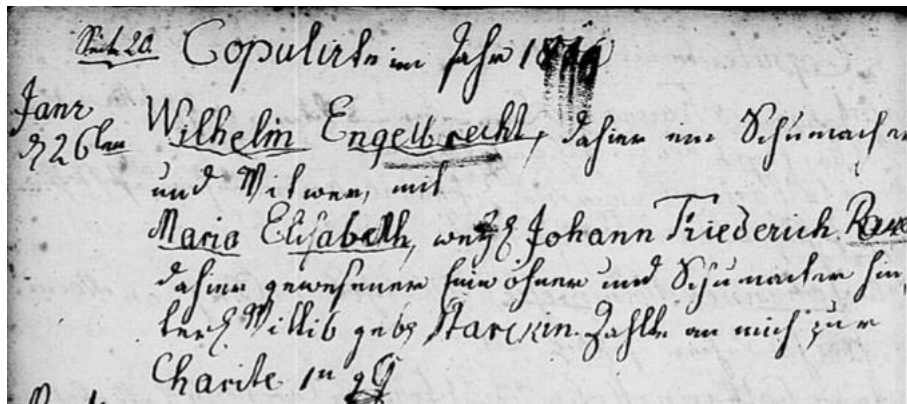 Seite 20. Copulirte im Jahr
Janr
d 26ten Wilhelm Engelbrecht, dahier ein Schumacher
und Witwer, mit
Maria Elisabeth, weyl Johann Friederich
dahier gewesener Einwohner und Schumacher hin
terl Wittib geb Starckin. Zahlte an mich zur
Charite 1